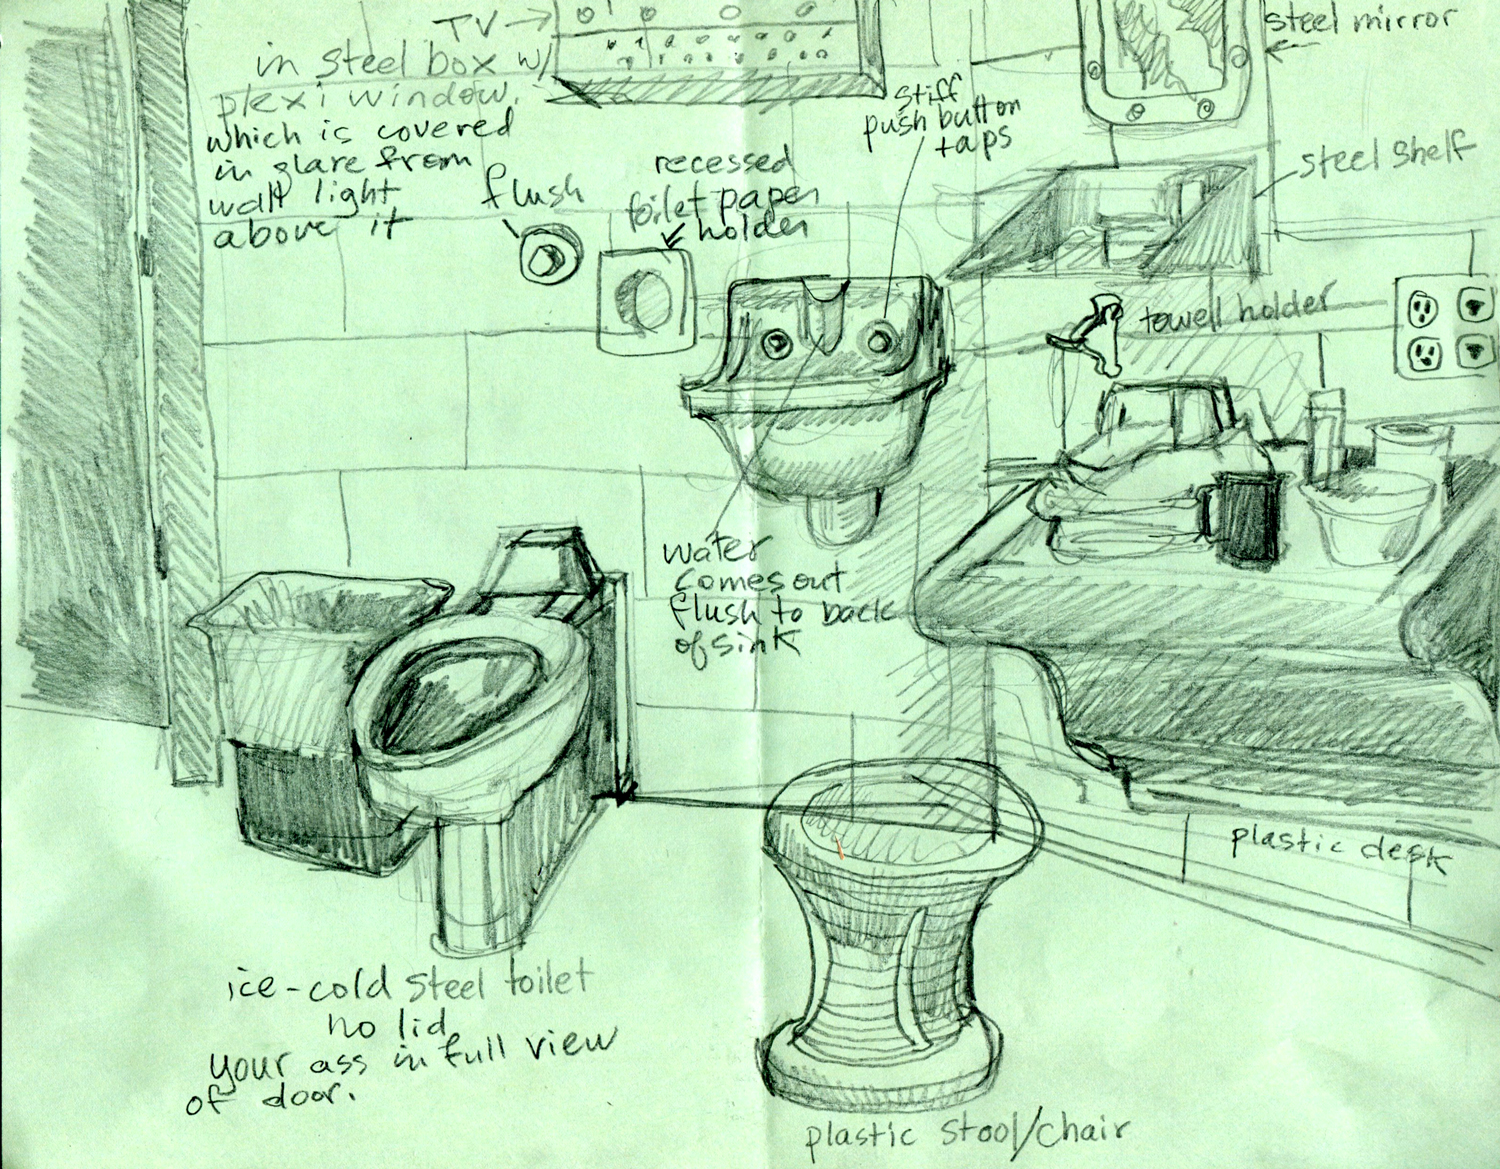 TV →
in steel box w/
plexi window.
which is covered
in glare from
wall light
above it
flush
recessed
toilet paper
holder
stiff
push button
taps
steel mirror
steel shelf
towell holder
water
comes out
flush to back
of sink
plastic desk
ice-cold steel toilet
no lid
your ass in full view
of door.
plastic stool/chair